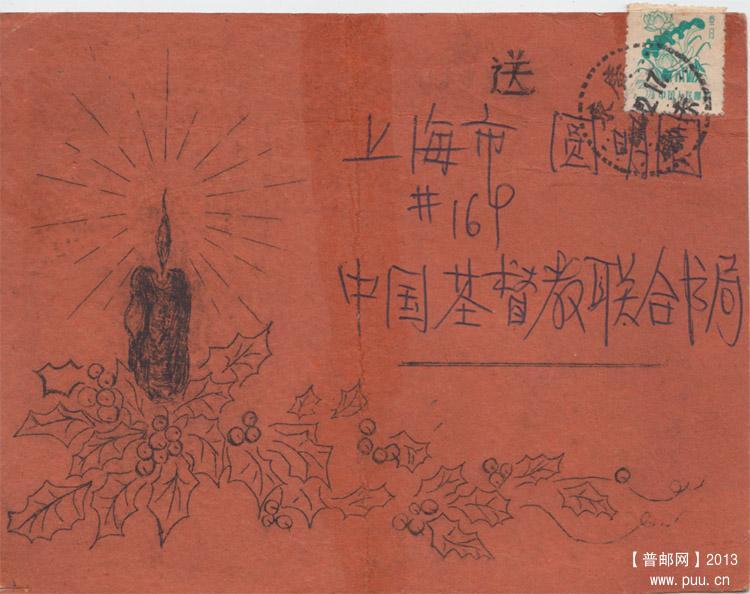 送
上海市 圆明园
#169
中国基督教联合书局
【普邮网】2013
www.puu.cn